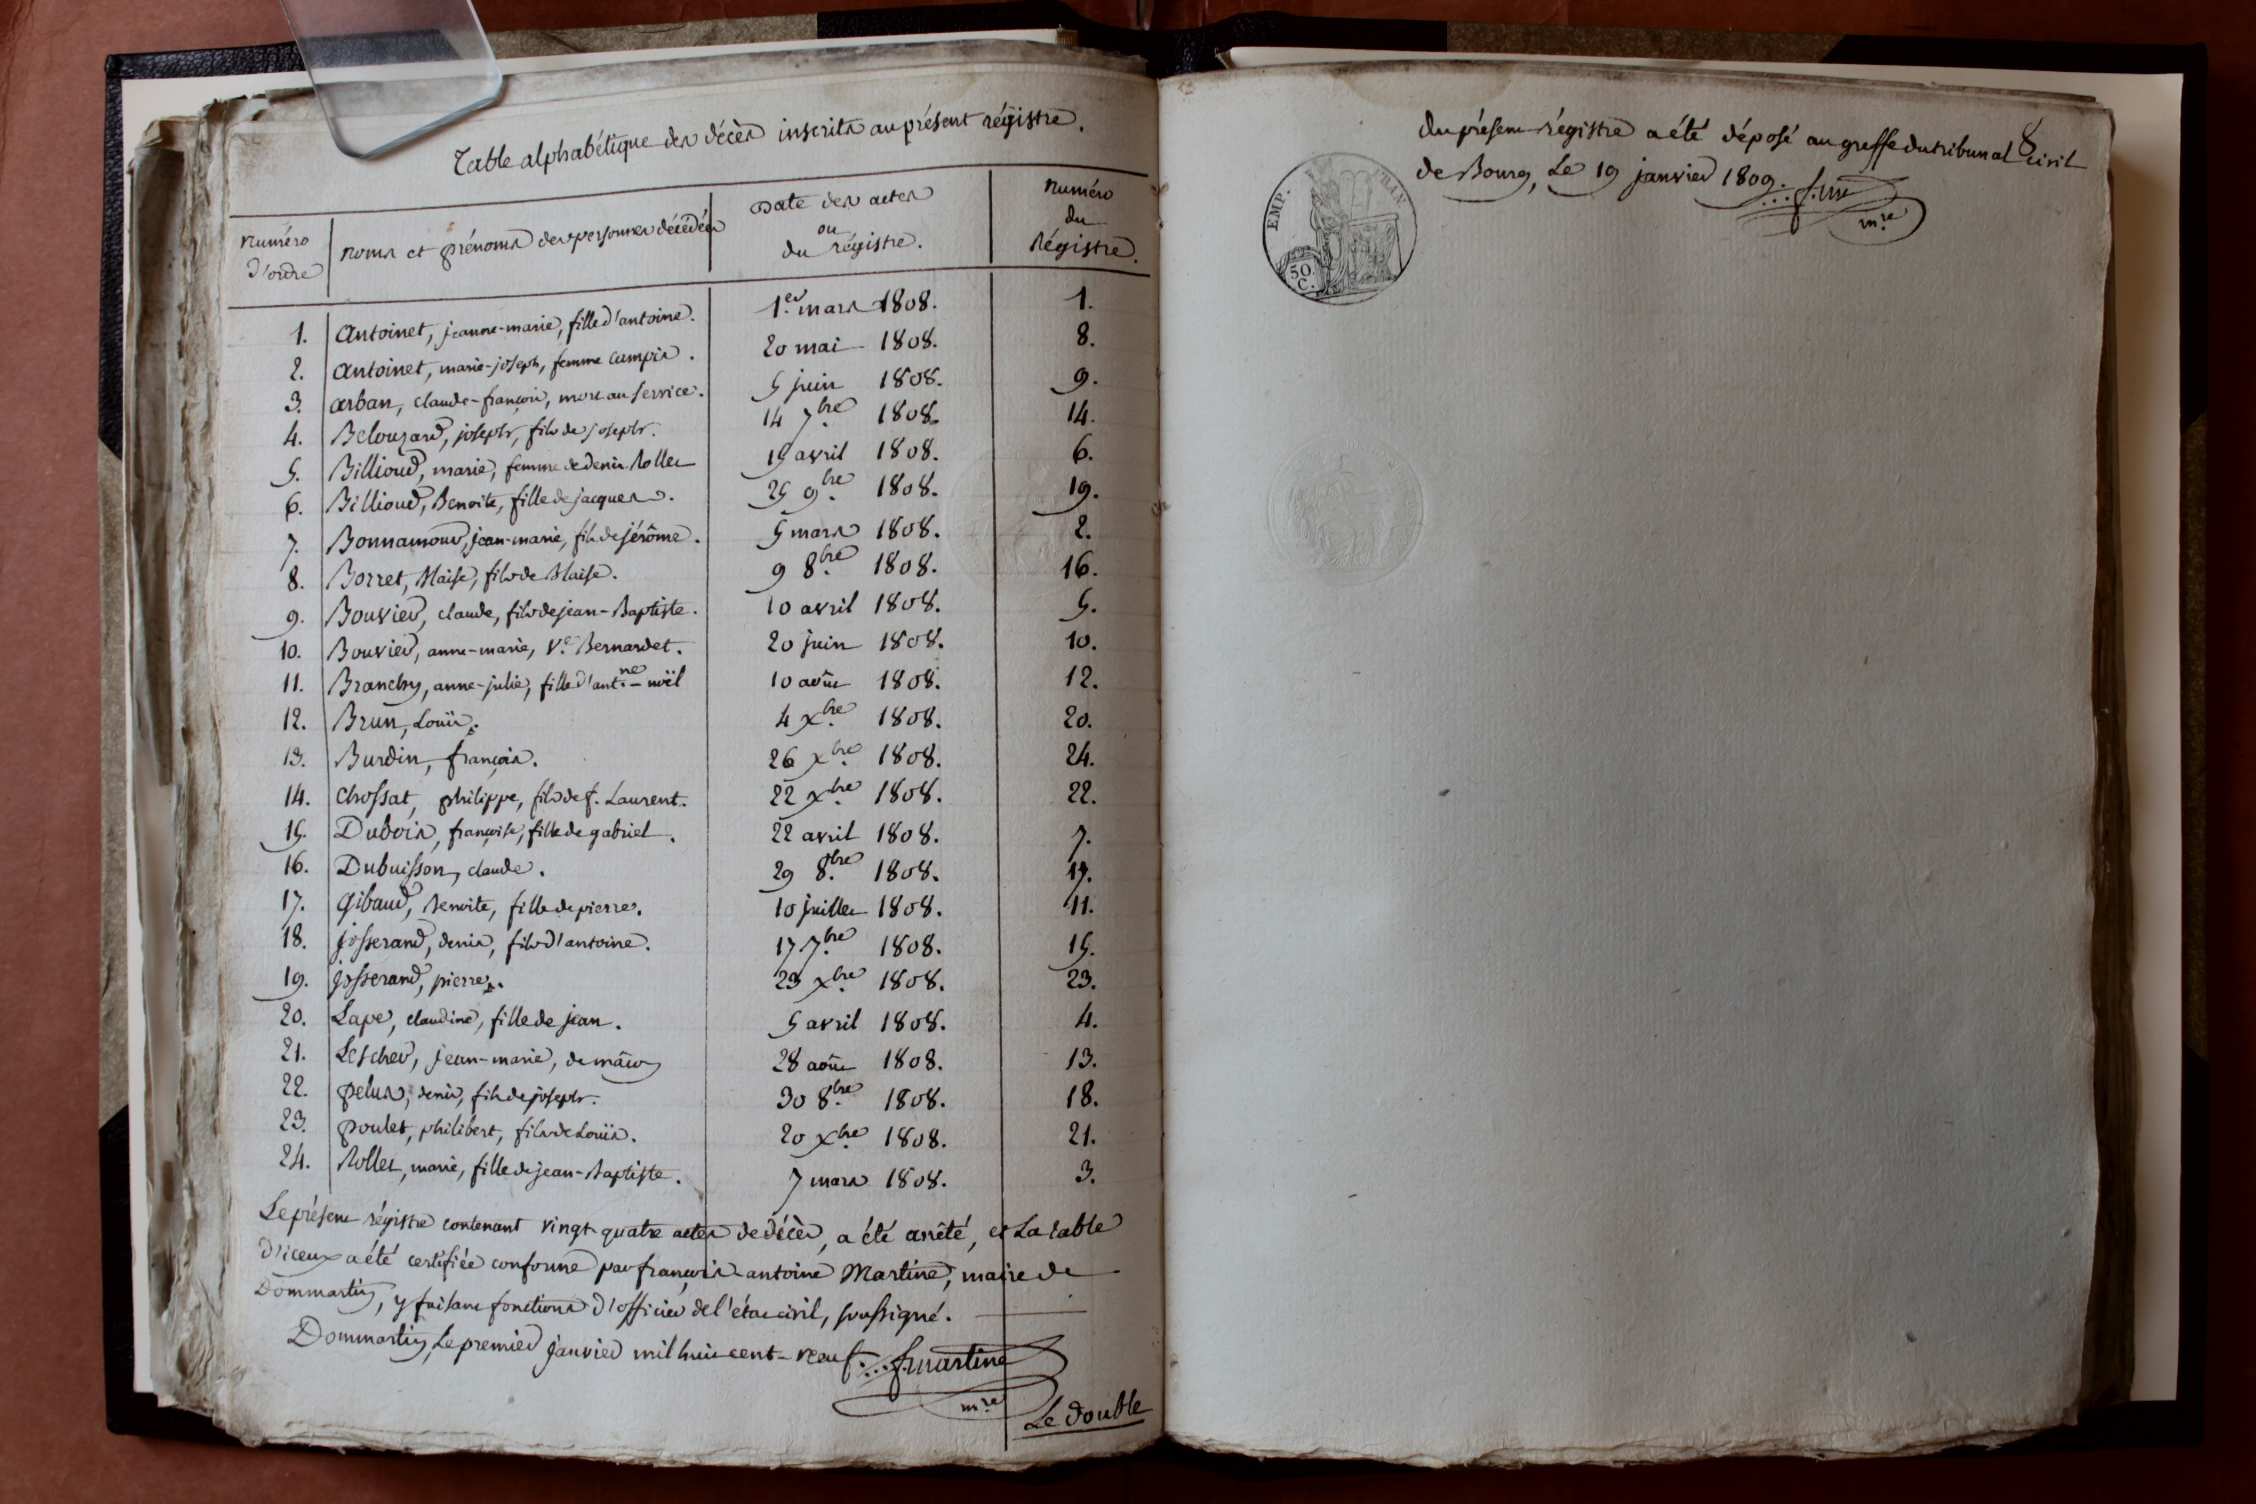 Table alphabétique des décès inscrits au présent régistre.
numéro d'ordre | noms et prénoms des personnes décédées | Date des actes ou du régistre. | numéro du Régistre.
1. | Antoinet, jeanne-marie, fille d'antoine. | 1.er mars 1808. | 1.
2. | Antoinet, marie-joseph, femme Campis. | 20 mai 1808. | 8.
3. | Arban, claude-françois, mort au service. | 5 juin 1808. | 9.
4. | Belouzard, joseph, fils de joseph. | 14 7.bre 1808. | 14.
5. | Billioud, marie, femme de denis Rollet | 15 avril 1808. | 6.
6. | Billioud, Benoite, fille de jacques. | 25 9.bre 1808. | 19.
7. | Bonnamour, jean-marie, fils de jérôme. | 5 mars 1808. | 2.
8. | Borret, Blaise, fils de Blaise. | 9 8.bre 1808. | 16.
9. | Bouvier, claude, fils de jean-Baptiste. | 10 avril 1808. | 5.
10. | Bouvier, anne-marie, V.e Bernardet. | 20 juin 1808. | 10.
11. | Branchy, anne-julie, fille d'ant.ne-noël | 10 août 1808. | 12.
12. | Brun, Louïs. | 4 x.bre 1808. | 20.
13. | Burdin, françois. | 26 x.bre 1808. | 24.
14. | Chossat, philippe, fils de f. Laurent. | 22 x.bre 1808. | 22.
15. | Dubois, françoise, fille de gabriel. | 22 avril 1808. | 7.
16. | Dubuisson, claude. | 29 8.bre 1808. | 17.
17. | Gibaud, Benoite, fille de pierre. | 10 juillet 1808. | 11.
18. | josserand, denis, fils d'antoine. | 17 7.bre 1808. | 15.
19. | josserand, pierre. | 23 x.bre 1808. | 23.
20. | Lape, claudine, fille de jean. | 5 avril 1808. | 4.
21. | Lescher, jean-marie, de mâcon | 28 août 1808. | 13.
22. | pelus, denis, fils de joseph. | 30 8.bre 1808. | 18.
23. | poulet, philibert, fils de Louïs. | 20 x.bre 1808. | 21.
24. | Rollet, marie, fille de jean-Baptiste. | 7 mars 1808. | 3.
Le présent régistre contenant vingt-quatre actes de décès, a été arrêté, et La table
d'iceux a été certifiée conforme par françois antoine Martine, maire de
Dommartin, y faisant fonctions d'officier de l'état civil, soussigné.
Dommartin, Le premier janvier mil huit cent-neuf... f. martine
m.re
Le double
8
du présent régistre a été déposé au greffe du tribunal civil
de Bourg, Le 19 janvier 1809.
m.re
EMP. FRAN.
50. C.